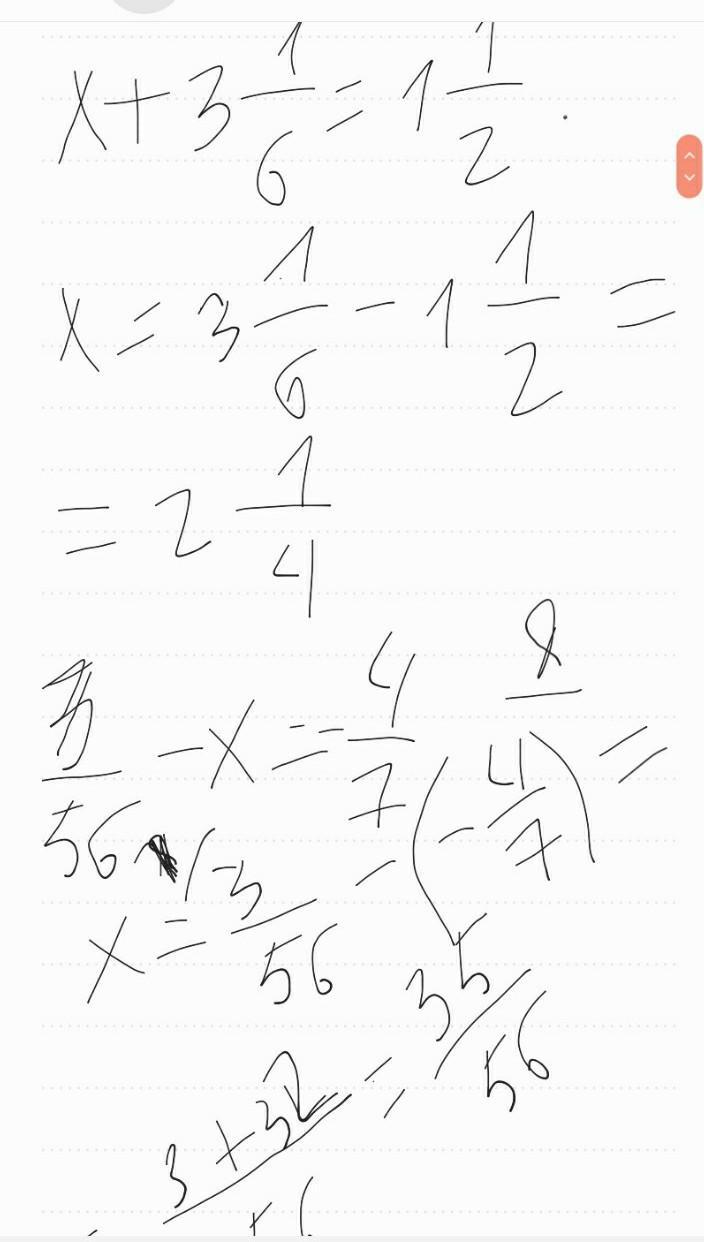 x + 3 1/6 = 1 1/2 .
x = 3 1/6 - 1 1/2 =
= 2 1/4
3/56 - x = -4/7
x = 3/56 - (-4/7) =
8
3+32/56 = 35/56